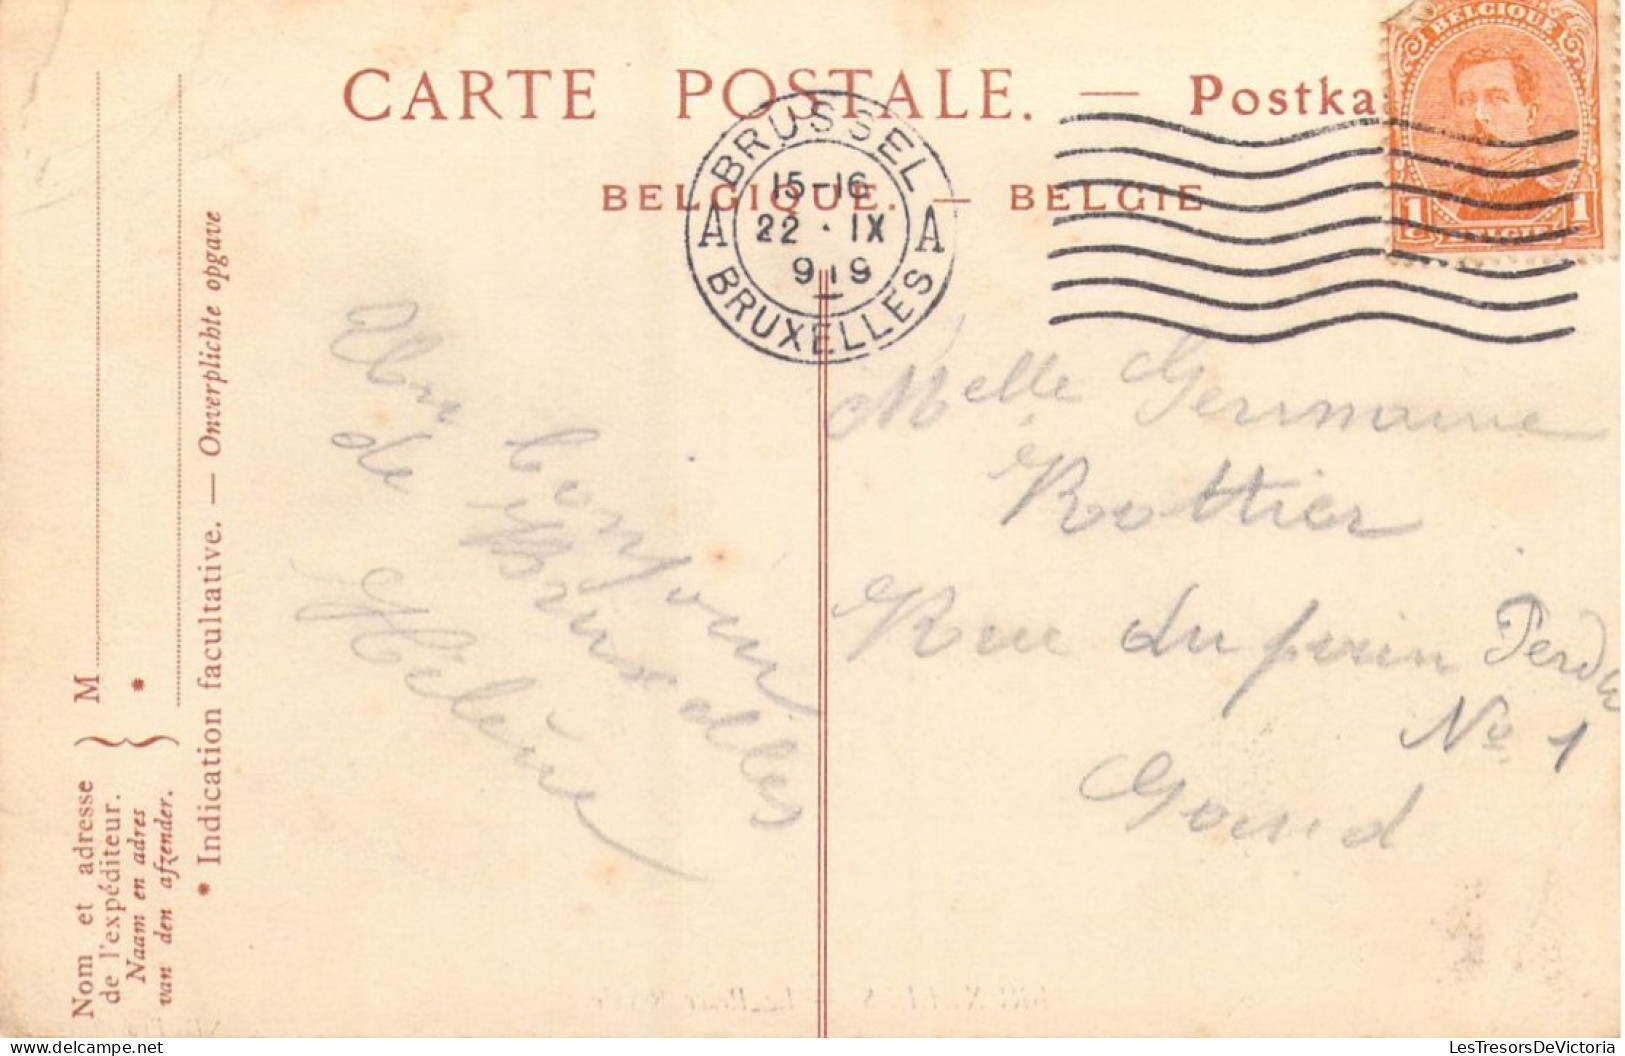 CARTE POSTALE. — Postka
BELGIQUE. — BELGIE
BELGIQUE
1 1
BELGIE
BRUSSEL
15-16
A 22 · IX A
919
BRUXELLES
Nom et adresse
de l'expéditeur.
Naam en adres
van den afzender.
M
*
* Indication facultative. — Onverplichte opgave
Un bonjour
de Bruxelles
Hélène
Melle Germaine
Rottier
Rue du pain Perdu
No 1
Gand
LesTresorsDeVictoria